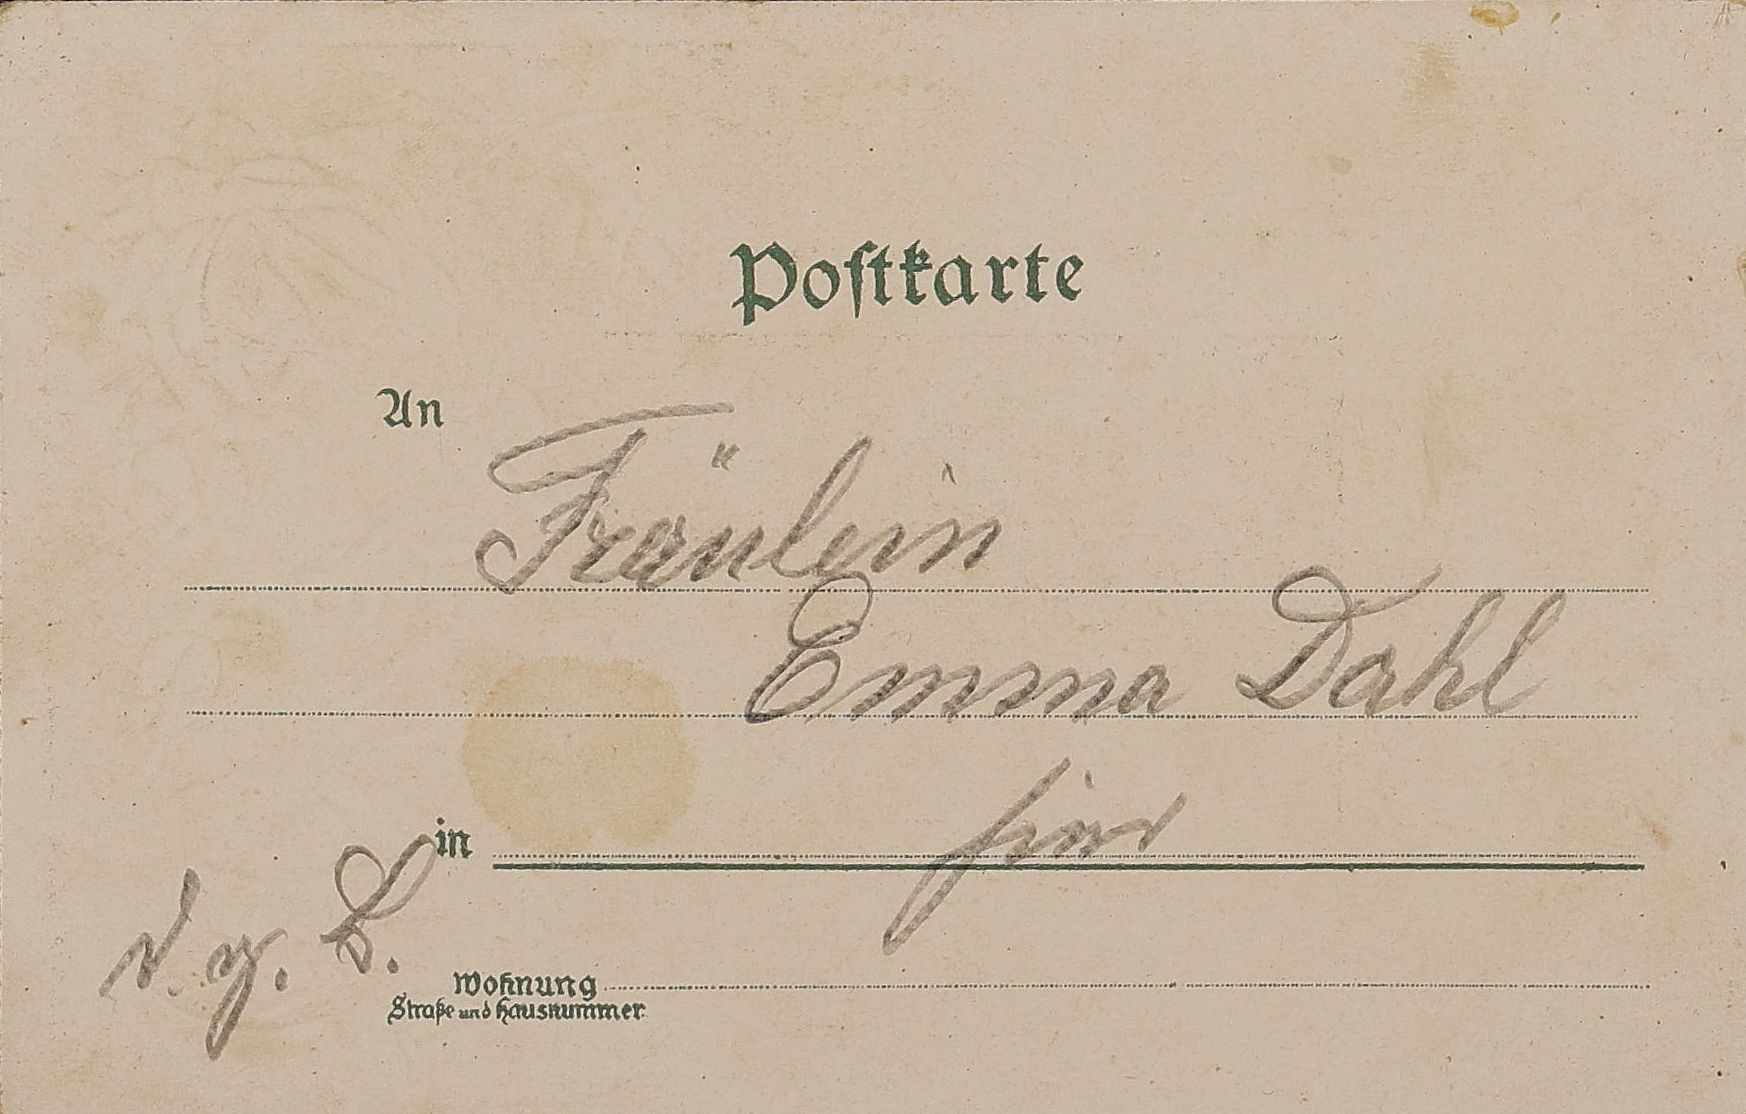 Postkarte
An
Fräulein
Emma Dahl
in hier
d. g. L.
Wohnung
Straße und Hausnummer